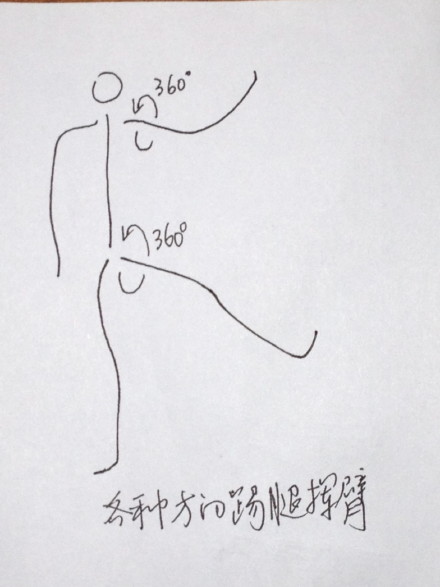 360°
360°
各种方向踢腿挥臂